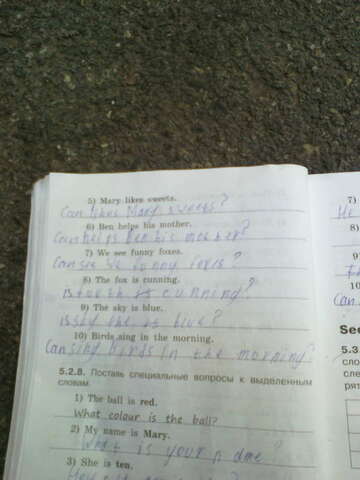 5) Mary likes sweets.
Can likes Mary sweets?
6) Ben helps his mother.
Can helps Ben his mother?
7) We see funny foxes.
Can see we funny foxes?
8) The fox is cunning.
is cunning?
9) The sky is blue.
is sky the is blue?
10) Birds sing in the morning.
Can sing birds in the morning?
5.2.8. Поставь специальные вопросы к выделенным
словам.
1) The ball is red.
What colour is the ball?
2) My name is Mary.
What is your name?
3) She is ten.
7)
He
8)
9)
10
Can
See
5.3